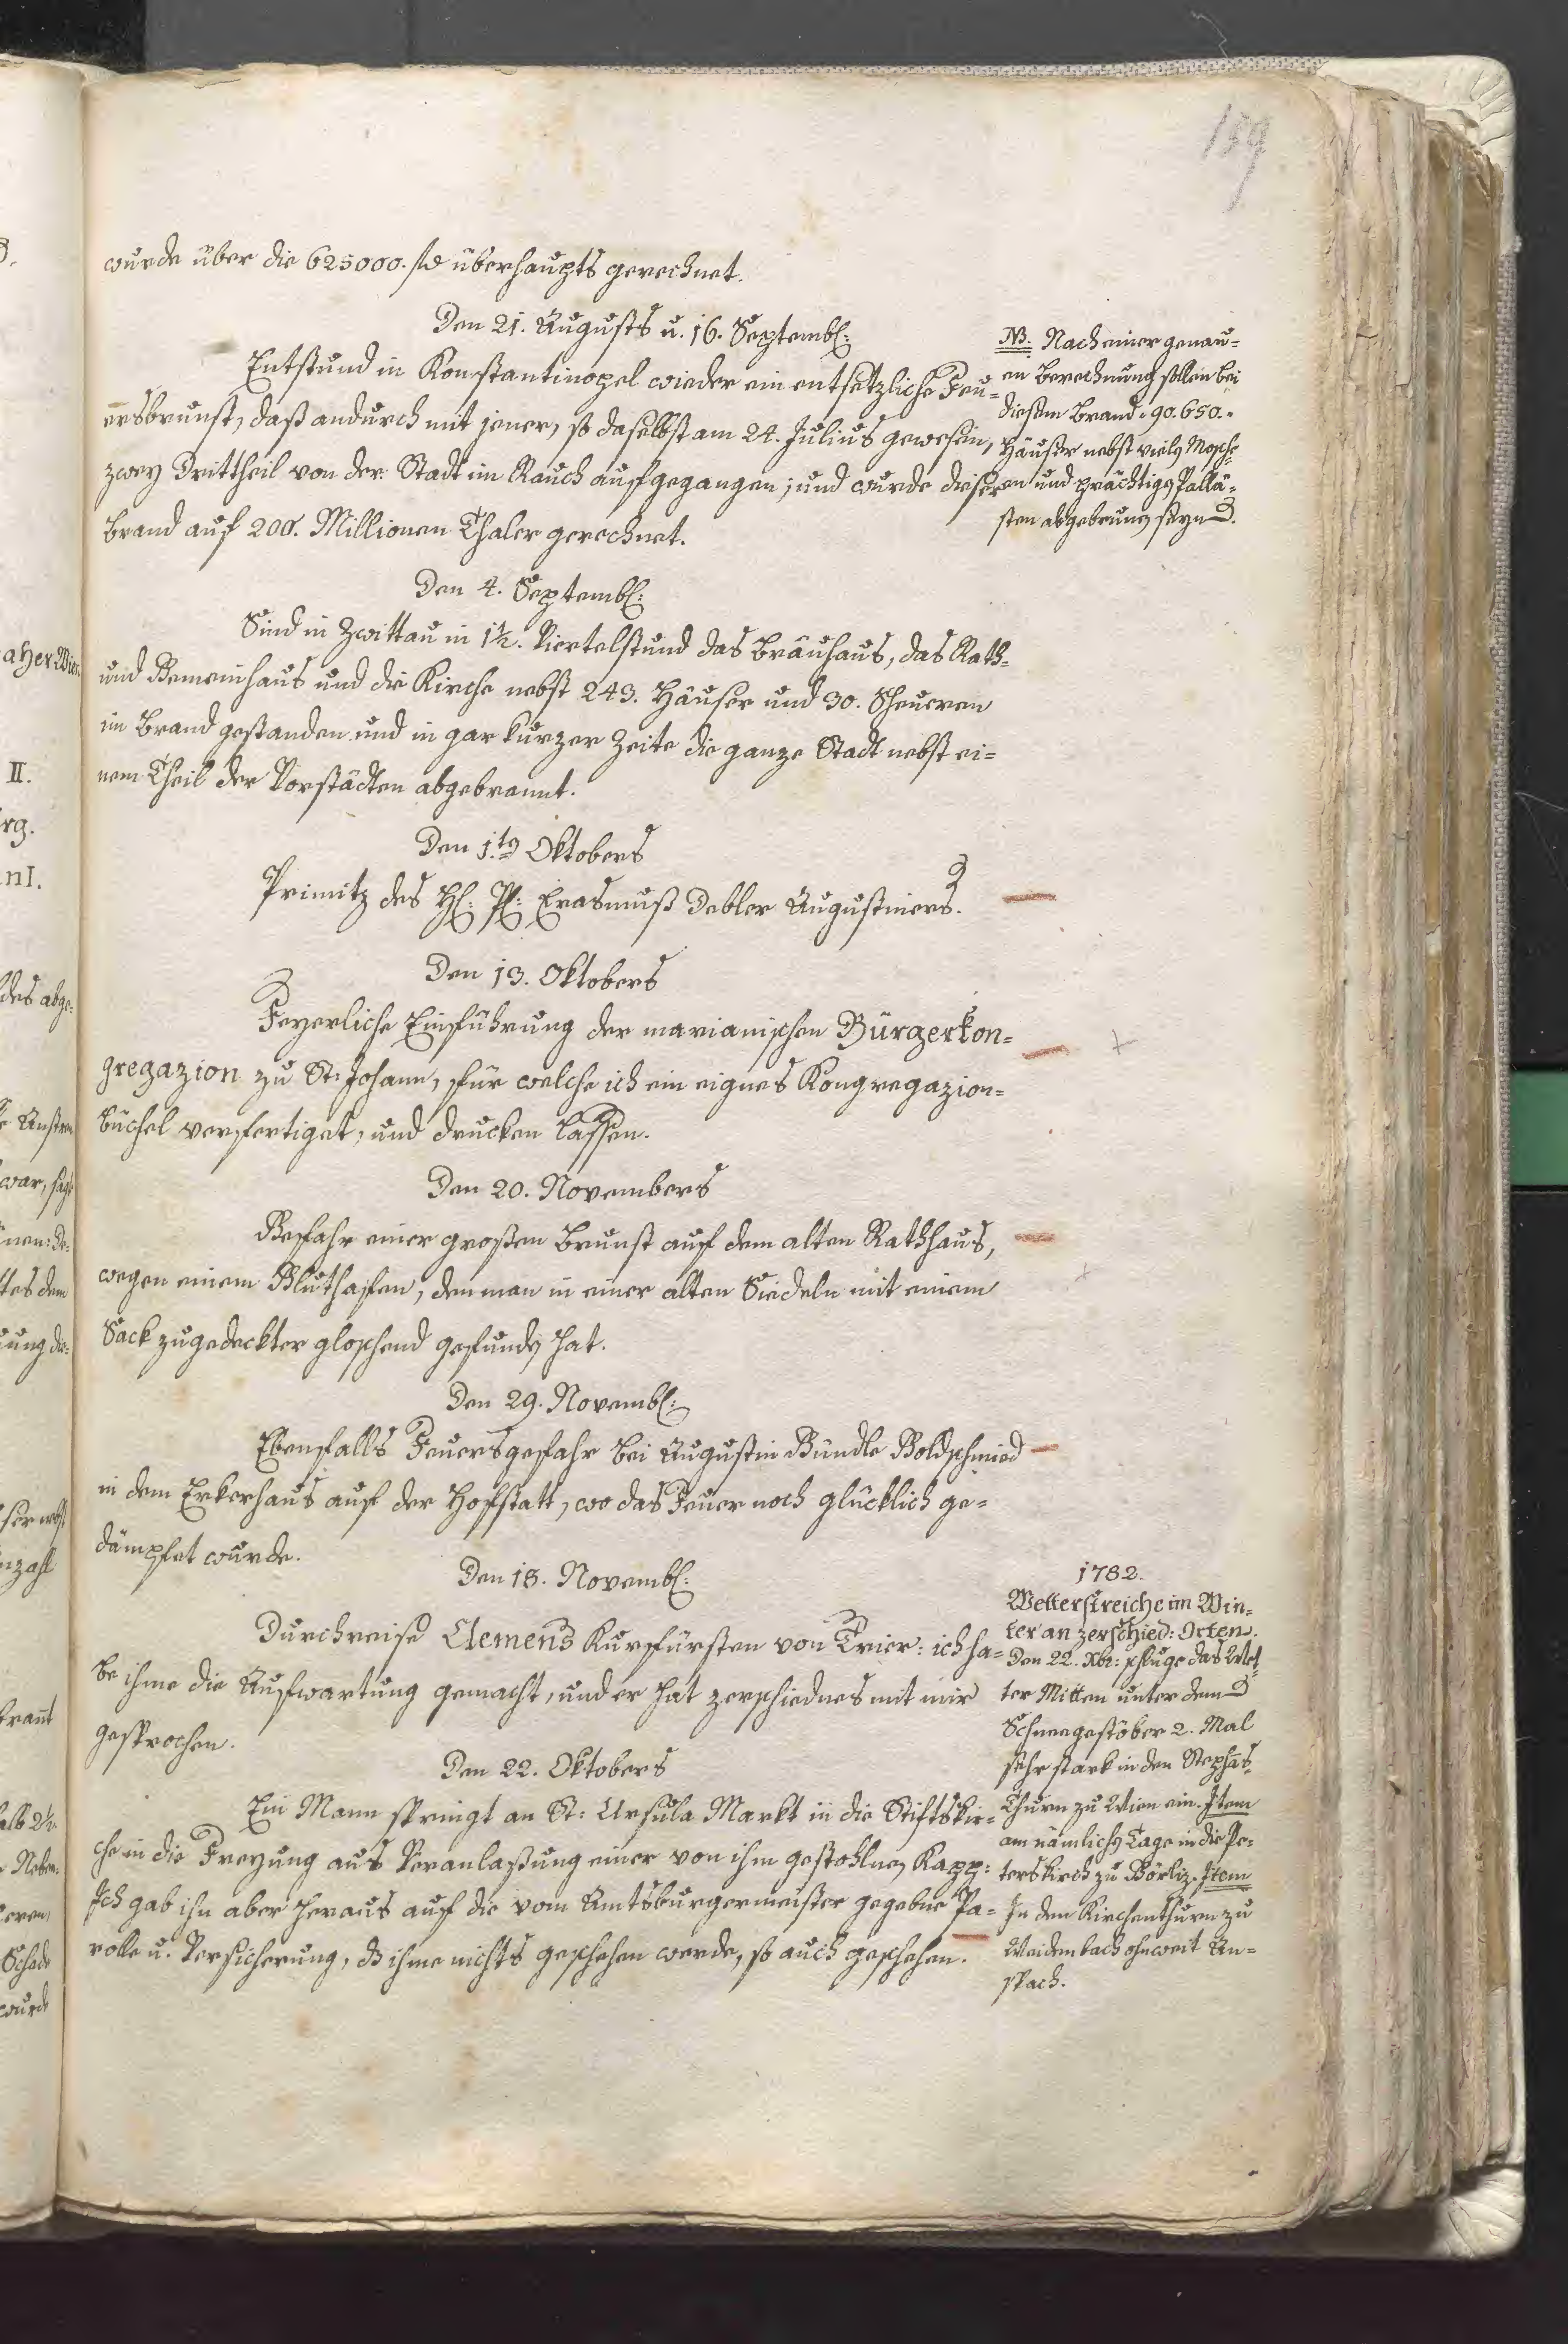 159
wurde über die 625000. fl überhaupts gerechnet.
Den 21. Augusts u. 16. Septembr:
Entstund in Konstantinopel wieder ein entsetzliche Feu=
ersbrunst, daß andurch mit jener, so daselbst am 24. Julius gewesen,
zwey Drittheil von der Stadt im Rauch aufgegangen; und wurde dieser
Brand auf 200. Millionen Thaler gerechnet.
NB. Nach einer genau=
en Berechnung sollen bei
diesem Brand 90.650.
Häuser nebst vielen Mosche
en und prächtigen Pallä=
sten abgebrunnen seyn.
Den 4. Septembr:
Sind in Zwittau in 1½. Viertelstund das Bräuhaus, das Rath=
und Gemeinhaus und die Kirche nebst 243. Häuser und 30. Scheueren
im Brand gestanden und in gar kurzer Zeite die ganze Stadt nebst ei=
nem Theil der Vorstädten abgebrannt.
Den 1.ten Oktobers
Primitz des H: P: Erasmuß Debler Augustiners.
Den 13. Oktobers
Feyerliche Einführung der marianischen Bürgerkon=
gregazion zu St: Johann, für welche ich ein eignes Kongregazion=
büchel verfertiget, und drucken lassen.
Den 20. Novembers
Gefahr einer großen Brunst auf dem alten Rathhaus,
wegen einem Gluthafen, den man in einer alten Siedeln mit einem
Sack zugedeckter gloschend gefunden hat.
Den 29. Novembr:
Ebenfalls Feuersgefahr bei Augustin Bündle Goldschmied
in dem Erkerhaus auf der Hofstatt, wo das Feuer noch glücklich ge=
dämpfet wurde.
Den 18. Novembr:
Durchreise Clemens Kurfürsten von Trier: ich ha=
be ihme die Aufwartung gemacht, und er hat zerschiednes mit mir
gesprochen.
Den 22. Oktobers
Ein Mann springt an St: Ursula Markt in die Stiftskir=
che in die Freyung aus Veranlaßung einer von ihm gestohlnen Kapp:
Ich gab ihn aber heraus auf die vom Amtsburgermeister gegebne Pa=
rolle u. Versicherung, dß ihme nichts geschehen werde, so auch geschehen.
1782.
Wetterstreiche im Win=
ter an zerschied: Orten.
Den 22. Xbr: schluge das Wet=
ter Mitten unter dem
Schneegestöber 2. Mal
sehr stark in den Stephans
Thurn zu Wien ein. Item
am nämlichen Tage in die Pe=
terskirch zu Görliz. Item
In den Kirchenthurn zu
Weidenbach ohnweit An=
spach.